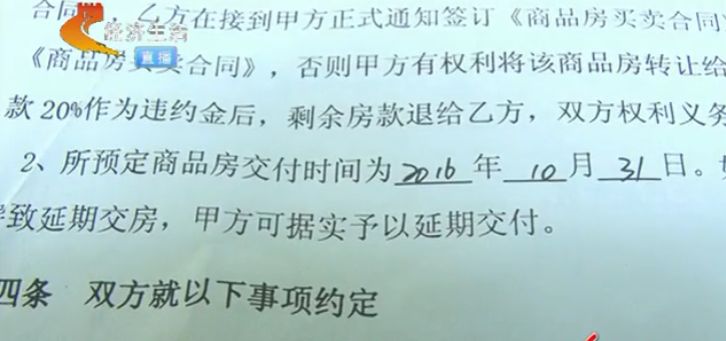 合同
乙方在接到甲方正式通知签订《商品房买卖合同
经济生活
直播
《商品房买卖合同》，否则甲方有权利将该商品房转让给
款20%作为违约金后，剩余房款退给乙方，双方权利义务
2、所预定商品房交付时间为2016年10月31日。
导致延期交房，甲方可据实予以延期交付。
四条 双方就以下事项约定